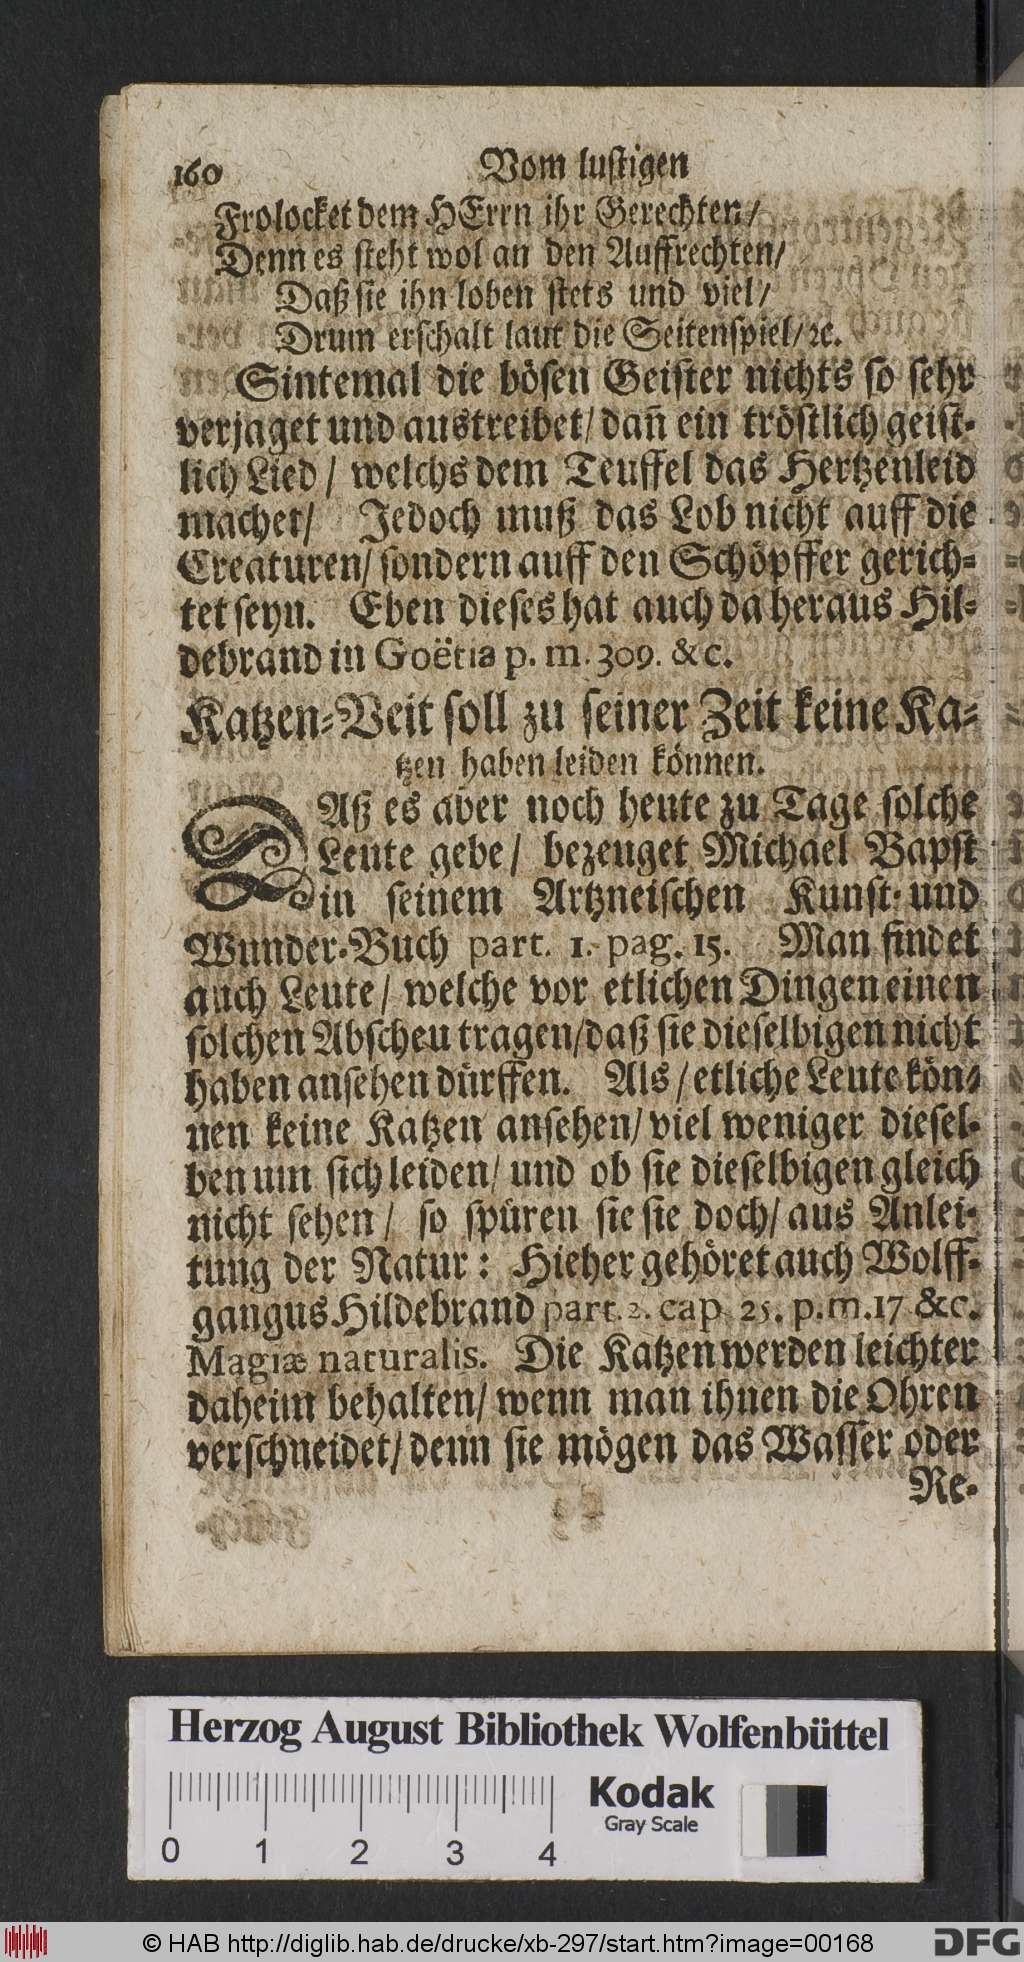 160 Vom lustigen
Frolocket dem HErrn ihr Gerechten/
Denn es steht wol an den Auffrechten/
Daß sie ihn loben stets und viel/
Drum erschalt laut die Seitenspiel/ ꝛc.
Sintemal die bösen Geister nichts so sehr
verjaget und austreibet/ dañ ein tröstlich geist-
lich Lied / welchs dem Teuffel das Hertzenleid
machet/ Jedoch muß das Lob nicht auff die
Creaturen/ sondern auff den Schöpffer gerich-
tet seyn. Eben dieses hat auch da heraus Hil-
debrand in Goëtia p. m. 309. &c.
Katzen-Veit soll zu seiner Zeit keine Ka-
tzen haben leiden können.
DAß es aber noch heute zu Tage solche
Leute gebe / bezeuget Michael Bapst
in seinem Artzneischen Kunst- und
Wunder-Buch part. 1. pag. 15. Man findet
auch Leute / welche vor etlichen Dingen einen
solchen Abscheu tragen/ daß sie dieselbigen nicht
haben ansehen dürffen. Als / etliche Leute kön-
nen keine Katzen ansehen/ viel weniger diesel-
ben um sich leiden/ und ob sie dieselbigen gleich
nicht sehen / so spüren sie sie doch/ aus Anlei-
tung der Natur: Hieher gehöret auch Wolff-
gangus Hildebrand part. 2. cap 25. p. m. 17 &c.
Magiæ naturalis. Die Katzen werden leichter
daheim behalten/ wenn man ihnen die Ohren
verschneidet/ denn sie mögen das Wasser oder
Re-
Herzog August Bibliothek Wolfenbüttel
Kodak
Gray Scale
0 1 2 3 4
© HAB http://diglib.hab.de/drucke/xb-297/start.htm?image=00168
DFG